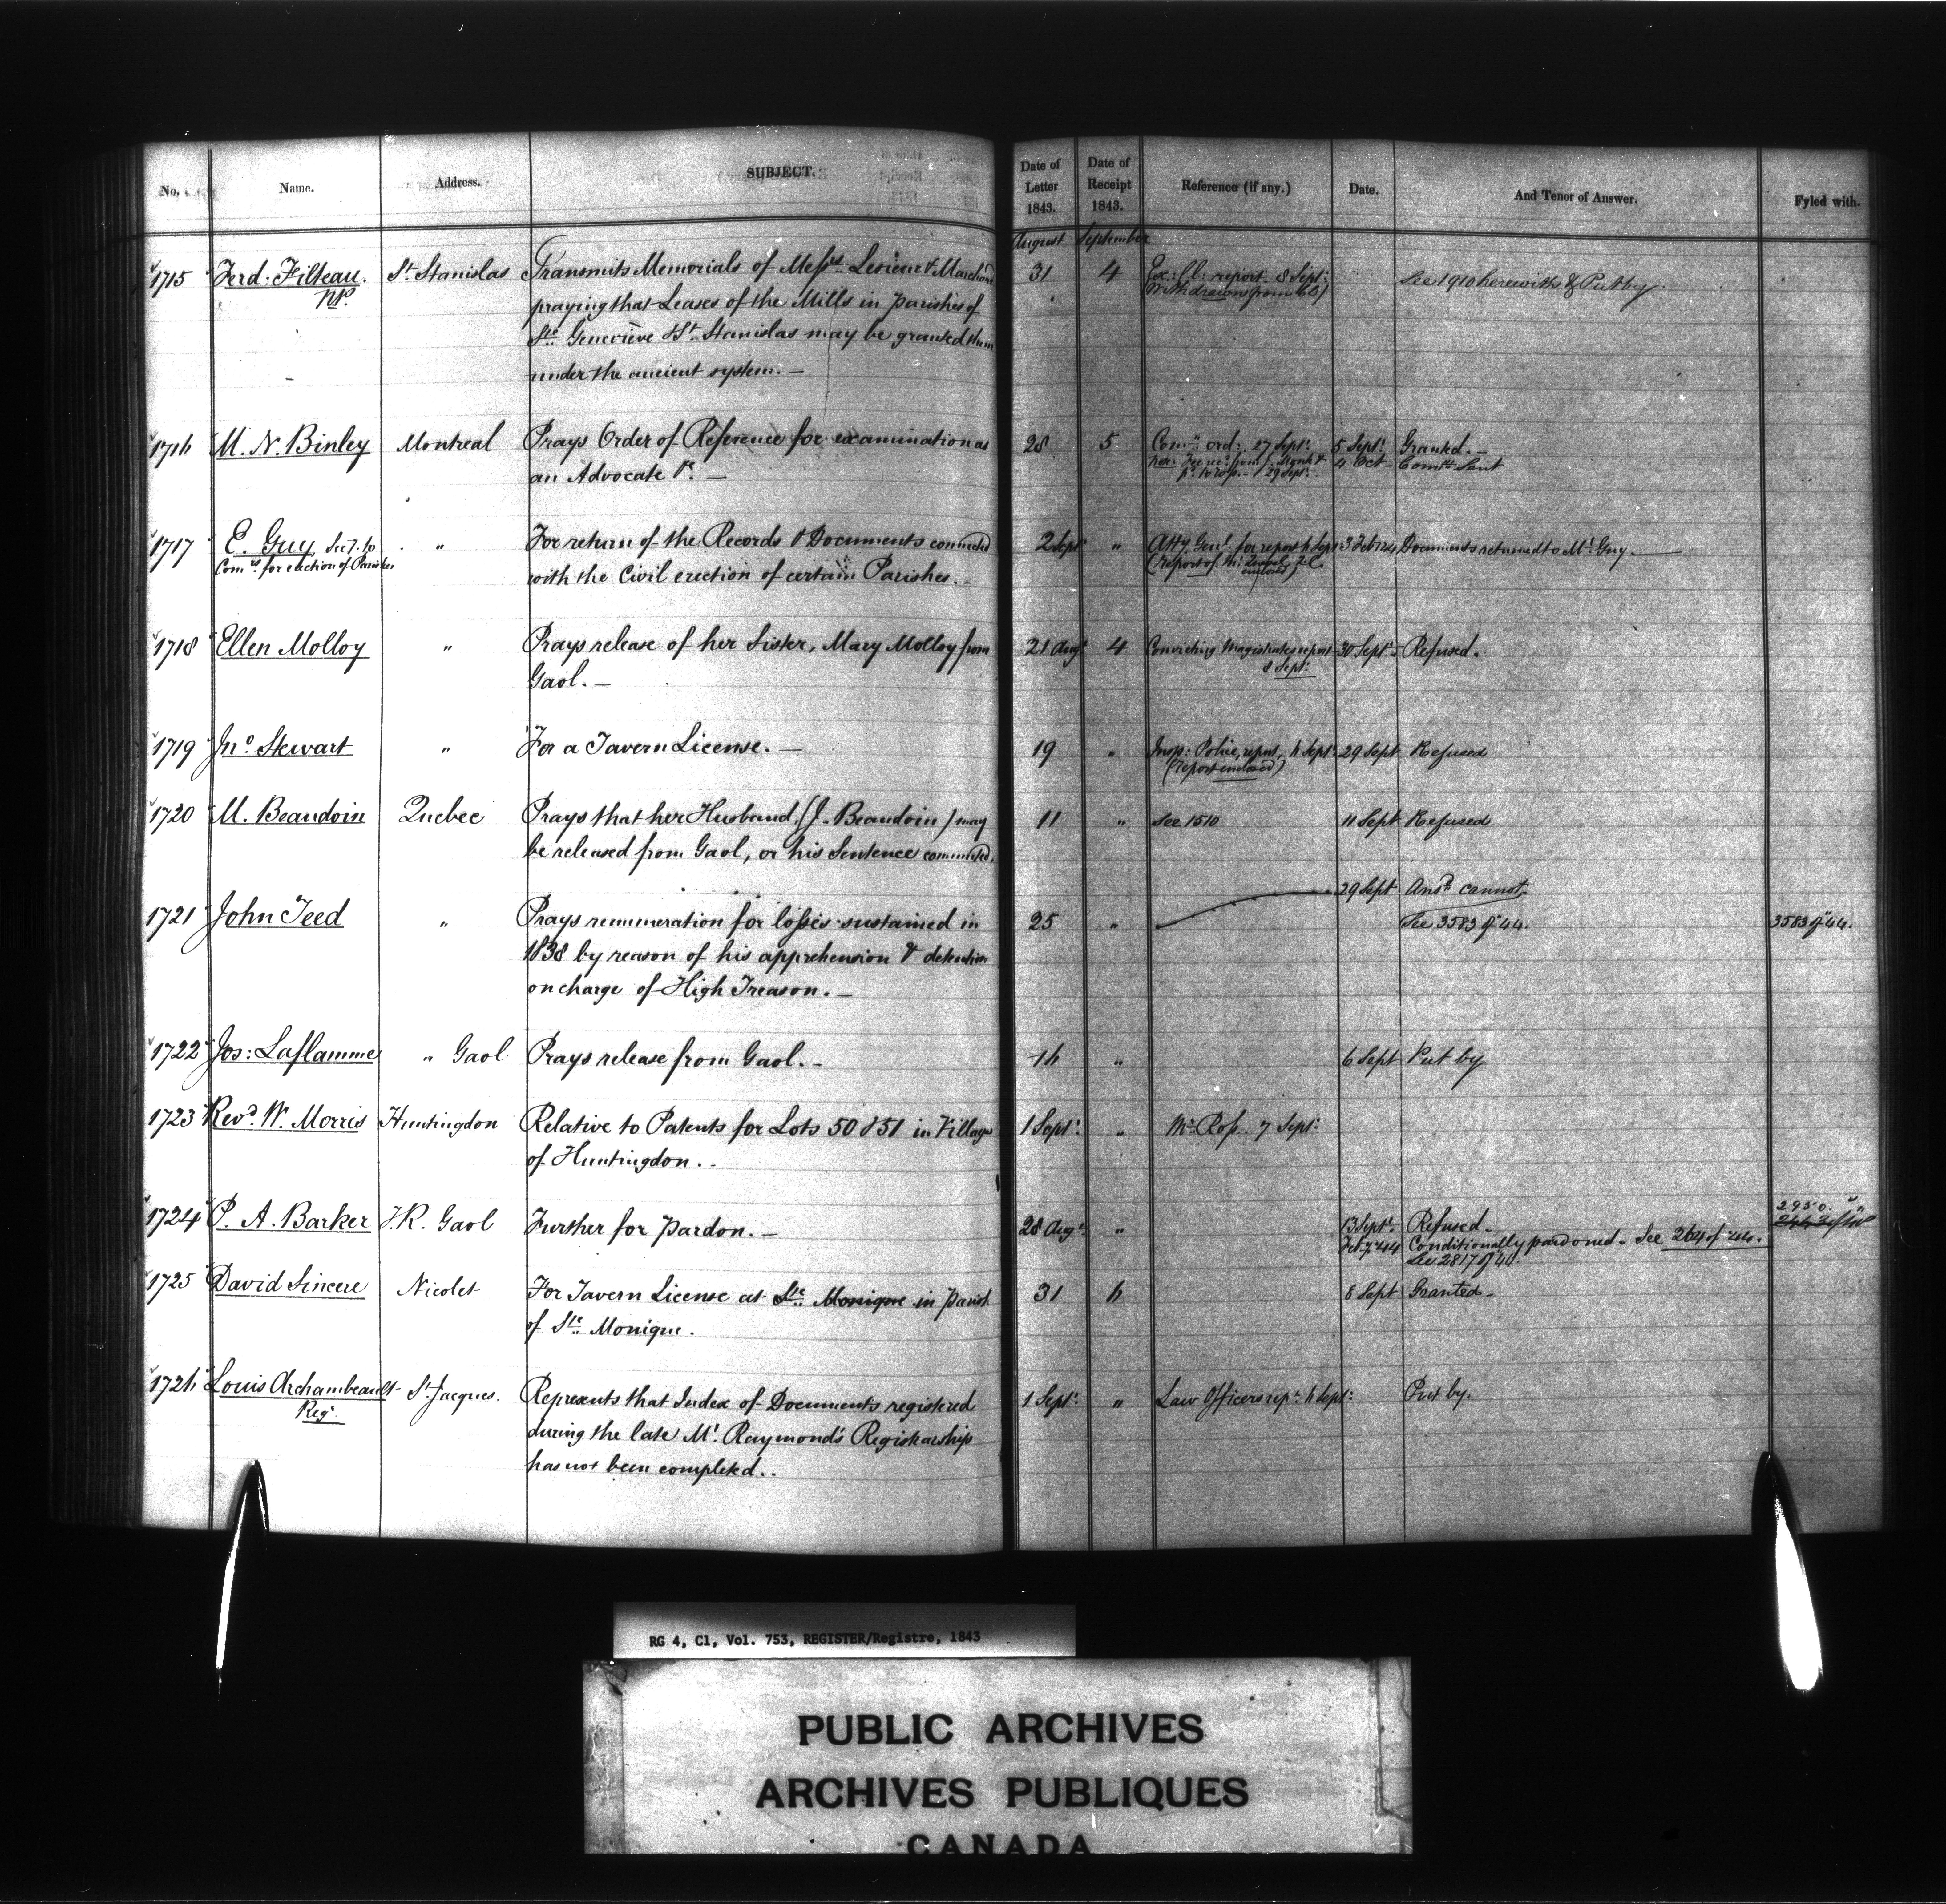 No. Name. Address. SUBJECT. Date of Letter 1843. Date of Receipt 1843. Reference (if any.) Date. And Tenor of Answer. Fyled with.
August September
1715 Ferd: Filteau. St Stanislas Transmits Memorials of Messrs Lesieur & Marchand 31 4 Ex: Cl: report 8 Sept: See 1910 herewith & Put by.
N.P. praying that Leases of the Mills in parishes of (Withdrawn from
Ste Geneviève & St Stanislas may be granted them
under the ancient system. —
1716 M. N. Binley Montreal Prays Order of Reference for examination as 28 5 Comn ord: 27 Sept: 5 Sept: Granted. —
an Advocate &c. — 29 Sept: 4 Oct Comn Sent
1717 E. Guy Secy. to " For return of the Records & Documents connected 2 Sept " Atty Genl. for report 6 Sept 3 Feb 44 Documents returned to Mr. Guy. —
Comrs. for erection of Parishes with the Civil erection of certain Parishes. — (report of Mr.
1718 Ellen Molloy " Prays release of her Sister, Mary Molloy from 21 Augt 4 Convicting Magistrates report 30 Sept: Refused.
Gaol. — 8 Sept:
1719 Jno Stewart " For a Tavern License. — 19 " Insp: Police, report, 6 Sept: 29 Sept Refused
(report enclosed)
1720 M. Beaudoin Quebec Prays that her Husband, (J. Beaudoin) may 11 " See 1510 11 Sept Refused
be released from Gaol, or his Sentence commuted.
29 Sept Ansd. cannot.
1721 John Teed " Prays remuneration for losses sustained in 25 " See 3583 of 44. 3583 of 44.
1838 by reason of his apprehension & detention
on charge of High Treason. —
1722 Jos: Laflamme " Gaol Prays release from Gaol. — 16 " 6 Sept Put by
1723 Revd. W. Morris Huntingdon Relative to Patents for Lots 50 & 51 in Village 1 Sept: " Mr. Ross. 7 Sept:
of Huntingdon. .
2950. "
1724 P. A. Barker T.R. Gaol Further for pardon. — 28 Augt " 13 Sept. Refused.
Feby 44 Conditionally pardoned. See 264 of 44.
See 2817 of 44.
1725 David Sincere Nicolet For Tavern License at Ste Monique in parish 31 6 8 Sept Granted —
of Ste Monique.
1726 Louis Archambeault St Jacques. Represents that Index of Documents registered 1 Sept: " Law Officers rept. 6 Sept: Put by.
Regr. during the late Mr. Raymond's Registrarship
has not been completed. .
RG 4, C1, Vol. 753, REGISTER/Registre, 1843
PUBLIC ARCHIVES
ARCHIVES PUBLIQUES
CANADA